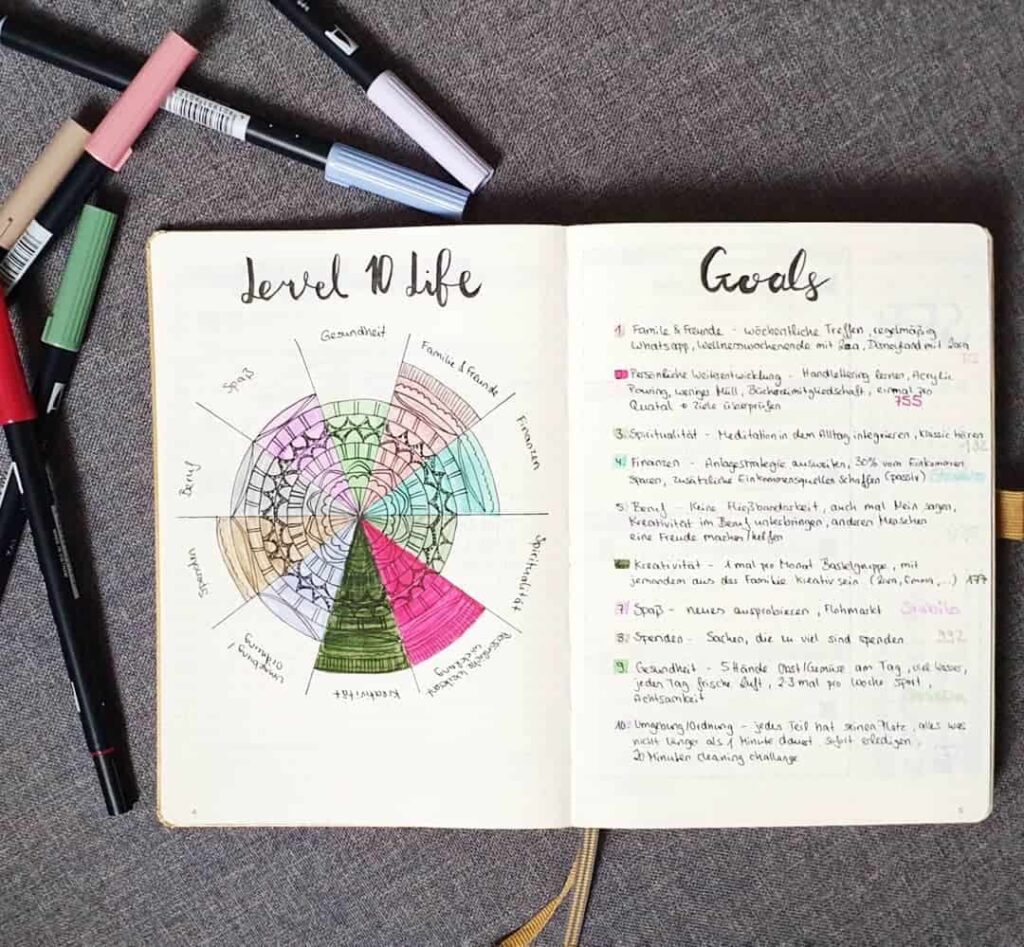 Level 10 Life
Gesundheit
Familie & Freunde
Finanzen
Spiritualität
Persönliche Weiterent
wicklung
Kreativität
Umgebung /
Ordnung
Spenden
Beruf
Spaß
4
Goals
1. Familie & Freunde - wöchentliche Treffen, regelmäßig
Whatsapp, Wellnesswochenende mit Disneyland mit
2. Persönliche Weiterentwicklung - Handlettering lernen, Acrylic
Pouring, weniger Müll, Büchereimitgliedschaft, einmal pro
Quatal Ziele überprüfen
755
3. Spiritualität - Meditation in den Alltag integrieren, Klassik hören
4. Finanzen - Anlagestrategie ausweiten, 30% vom Einkommen
sparen, zusätzliche Einkommensquellen schaffen (passiv)
5. Beruf - Keine Fließbandarbeit, auch mal Nein sagen,
Kreativität im Beruf unterbringen, anderen Menschen
eine Freude machen/helfen
6. Kreativität - 1 mal pro Monat Bastelgruppe, mit
jemandem aus der Familie kreativ sein ( Emma, ...) 177
7. Spaß - neues ausprobieren, Flohmarkt Stabilo
8. Spenden - Sachen, die zu viel sind spenden 992
9. Gesundheit - 5 Hände Obst/Gemüse am Tag, viel Wasser,
jeden Tag frische Luft, 2-3 mal pro Woche Sport,
Achtsamkeit
10. Umgebung/Ordnung - jedes Teil hat seinen Platz, alles was
nicht länger als 1 Minute dauert sofort erledigen,
20 Minuten cleaning challange
5